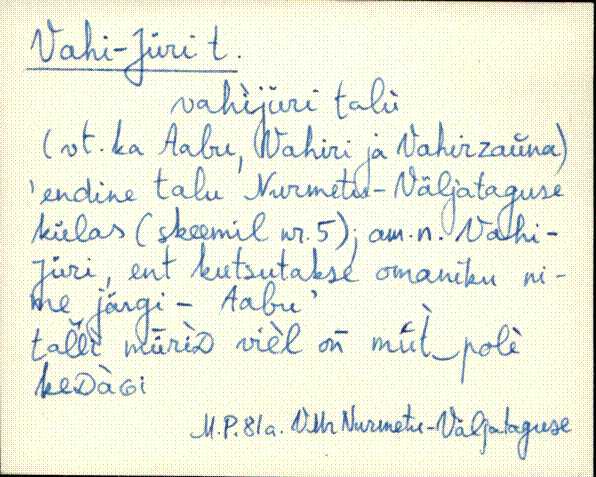 Vahi-Jüri t.
vahìjüri talù
(vt. ka Aabu, Vahiri ja Vahirzaũna)
'endine talu Nurmetu-Väljataguse
külas (skeemil nr. 5); am.n. Vahi-
Jüri, ent kutsutakse omaniku ni-
me järgi - Aabu'
mūrìD vièl on polè
keDàGi
M.P. 81a. VMr Nurmetu-Väljataguse